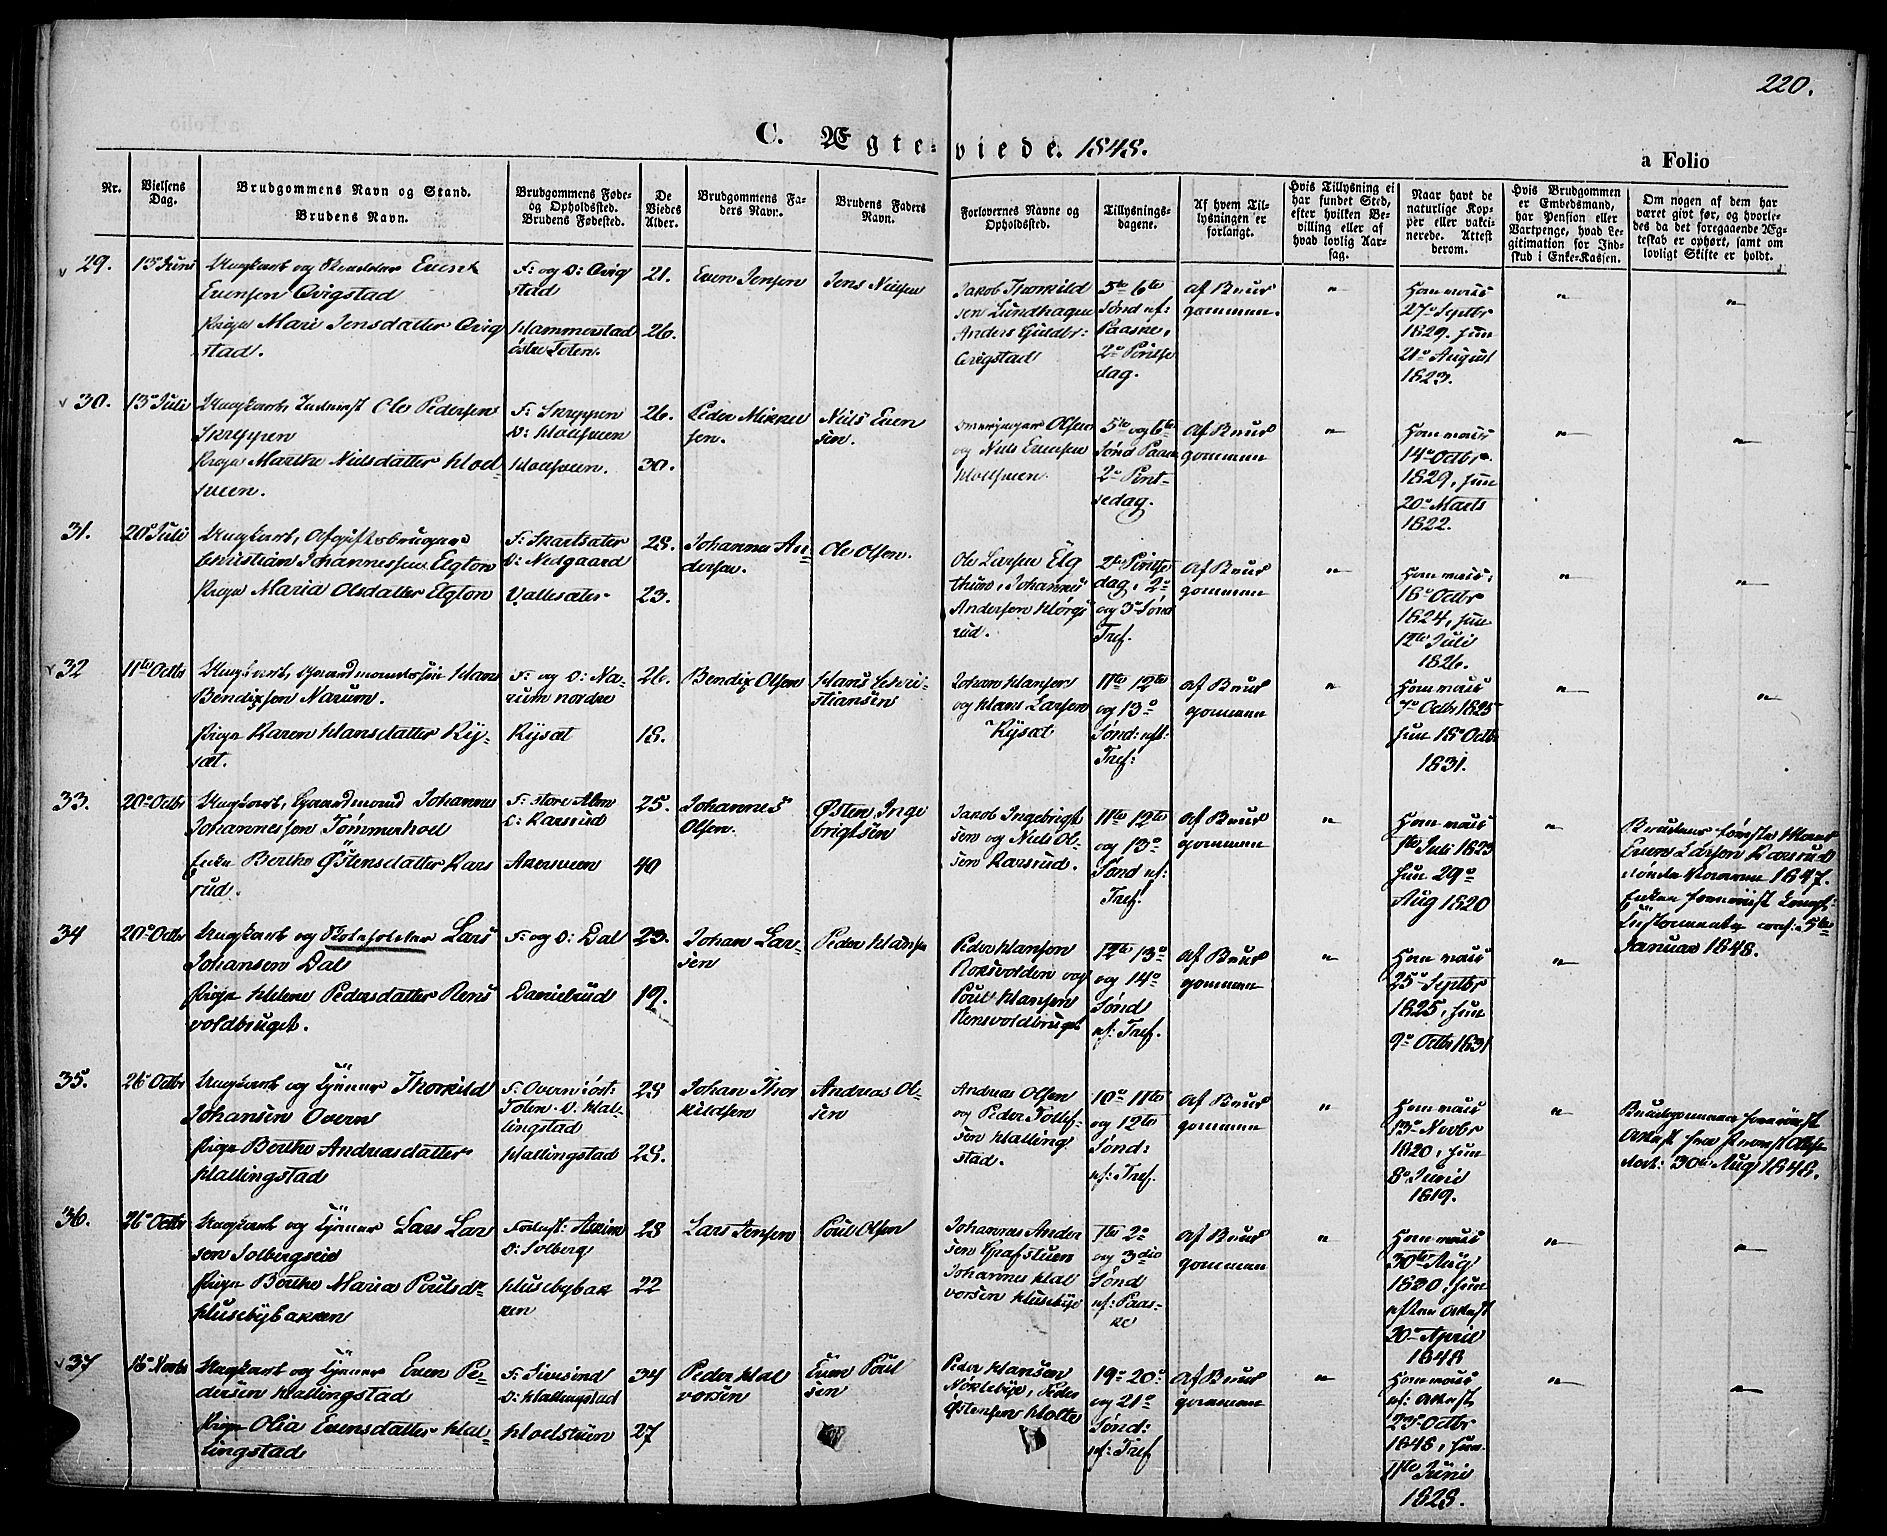 220.
C. Ægteviede. 1848.
a Folio
Nr.
Vielsens Dag.
Brudgommens Navn og Stand.
Brudens Navn.
Brudgommens Føde- og Opholdssted.
Brudens Fødested.
De Viedes Alder.
Brudgommens Faders Navn.
Brudens Faders Navn.
Forlovernes Navne og Opholdssted.
Tillysningsdagene.
Af hvem Tillysningen er forlangt.
Hvis Tillysning ei har fundet Sted, efter hvilken Bevilling eller af hvad lovlig Aarsag.
Naar havt de naturlige Kopper eller vaccinerede. Attest derom.
Hvis Brudgommen er Embedsmand, har Pension eller Vartpenge, hvad Legitimation for Indskud i Enke-Kassen.
Om nogen af dem har været givt før, og hvorledes da det foregaaende Ægteskab er ophørt, samt om lovligt Skifte er holdt.
29. 15 Juni Ungkarl og Skrædder Even
Evensen Qvigstad
Pige Marie Jensdatter Qvigstad.
F: og O: Qvigstad
Hammerstad østre Toten.
21.
26.
Even Jensen
Jens Nielsen
Jakob Thorkildsen Lundhagen
Anders Guldbr: Qvigstad
5te 6te Sønd ef: Paaske, 2n Pintsedag.
af Brudgommen.
Ham vacc: 27 Septbr 1829. hun 21 August 1823.
30. 13 Juli Ungkarl, Inderst Ole Pedersen
Skreppen
Pige Marthe Nielsdatter Hoelsveen.
F: Skreppen
O: Hoelsveen
Hoelsveen.
26.
30.
Peder Mikkelsen.
Niels Evensen.
Olsen
og Niels Evensen Hoelsveen
5te og 6te Sønd Paaske 2n Pintsedag.
af Brudgommen
Ham vacc: 14 Octbr 1829, hun 20 Marts 1822.
31. 20 Juli Ungkarl, Afgiftsbruger
Christian Johannessen Elgton
Pige Maria Olsdatter Elgton
F: Skartsæter
O: Nedgaard
Vallesæter
28.
23.
Johannes Andersen.
Ole Olsen.
Ole Larsen Elgthun, Johannes
Andersen Hørgsrud.
2n Pintsedag, 2n og 3n Sønd Tref.
af Brudgommen
Ham vacc: 16 Octbr 1824, hun 12te Juli 1826.
32 11te Octbr Ungkarl, Gaardmandssøn Hans
Bendixsen Narum.
Pige Karen Hansdatter Rysæt.
F: og O: Narum nordre
Rysæt
26.
18.
Bendix Olsen
Hans Christiansen
Johan Hansen
og Hans Larsen
Rysæt
11te 12te og 13n Sønd: eft: Tref:
af Brudgommen
Ham vacc: 7 Octbr 1825 hun 18 Octbr 1831.
33. 20 Octbr Ungkarl, Gaardmand Johannes
Johannessen Tømmerhoel
Enke Berthe Østensdatter Karsrud.
F: store Alm
O: Karsrud
Akersveen
25.
40
Johannes Olsen.
Østen Ingebrigtsen
Jakob Ingebrigtsen og Niels Olsen Karsrud.
11te 12te og 13n Sønd ef: Tref.
af Brudgommen
Ham vacc: 1te Juli 1823 hun 29 Aug 1820
Brudens første Mand
Even Larsen Karsrud
døde 1847.
Enken foreviist
Januar 1848.
34 20 Octbr Ungkarl og Skoleholder Lars
Johansen Dal
Pige Helene Pedersdatter Rensvoldbruget.
F: og O: Dal
Danielrud
23.
19.
Johan Larsen
Peder Hansen
Peder Hansen
Roksvolden og
Poul Hansen
Rensvoldbruget
12te 13n og 14n Sønd ef: Tref.
af Brudgommen
Ham vacc: 25 Septbr 1825, hun 9n Octbr 1831
35. 26 Octbr Ungkarl og Tjener Thorkild
Johansen Overn
Pige Berthe Andreasdatter
Hallingstad
F: Overn i øst: Toten. O: Hallingstad
Hallingstad
28
28.
Johan Thorkildsen
Andreas Olsen
Andreas Olsen
og Peder Tollefsen Hallingstad.
10n 11te og 12te Sønd: ef: Tref.
af Brudgommen
Ham vacc: 13 Novbr 1820, hun 8 Juni 1819.
Brudgommen foreviist
Attest fra Provst
30te Aug 1848.
36. 26 Octbr Ungkarl og Tjener Lars Larsen Solbergseie
Pige Berthe Maria Poulsdr
Husebybakken
O: Solberg
Husebybakken
28
22
Lars Jensen
Poul Olsen
Johannes Andersen Grafstuen
Johannes Halvorsen Husebye
1te 2n og 3die Sønd ef: Paaske
af Brudgommen
Ham vacc: 30te Aug 1820, hun efter Attest 20 April 1848
37 16 Novbr Ungkarl og Tjener Even Pedersen Hallingstad
Pige Olia Evensdatter Hallingstad
F: Sivesind
O: Hallingstad
Hoelstuen
34
27
Peder Halvorsen
Even Poulsen
Peder Hansen
Nøklebye, Peder
Østensen Holte
19n 20n og 21n Sønd: ef: Tref
af Brudgommen
Ham vacc: ef: Attest 23 Octbr 1848, hun 11te Juni 1823.